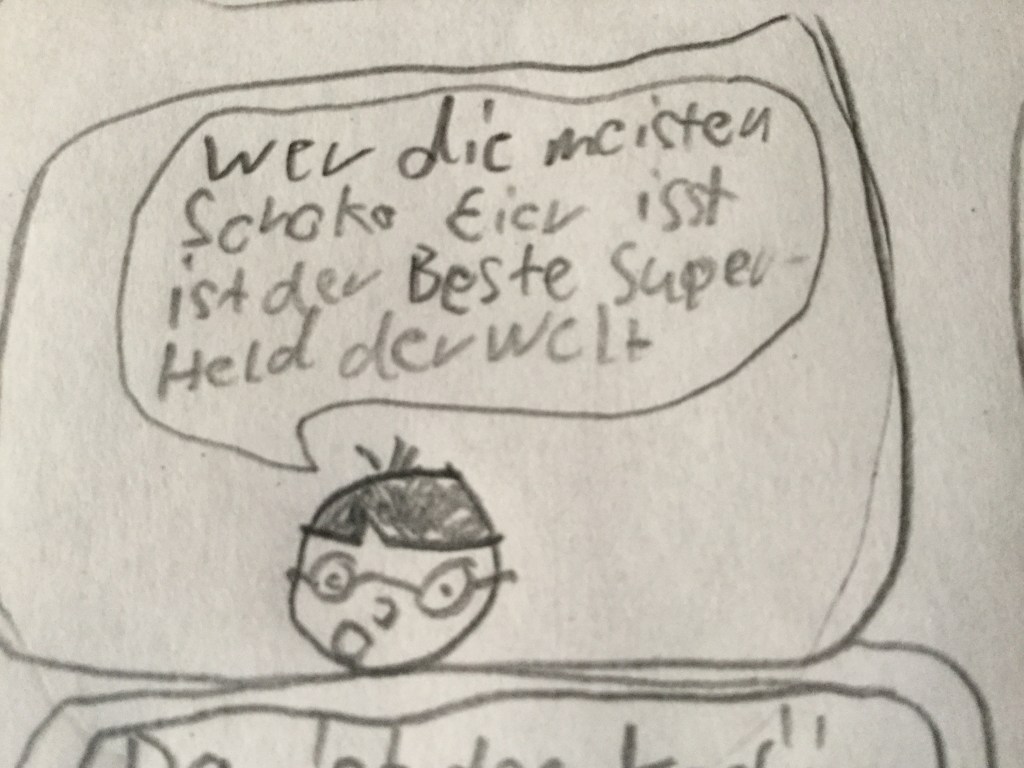 Wer die meisten
Schoko Eier isst
ist der Beste Super-
Held der Welt